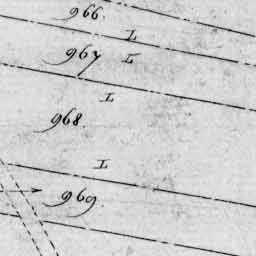 966.
L
967
L
L
968.
L
969.